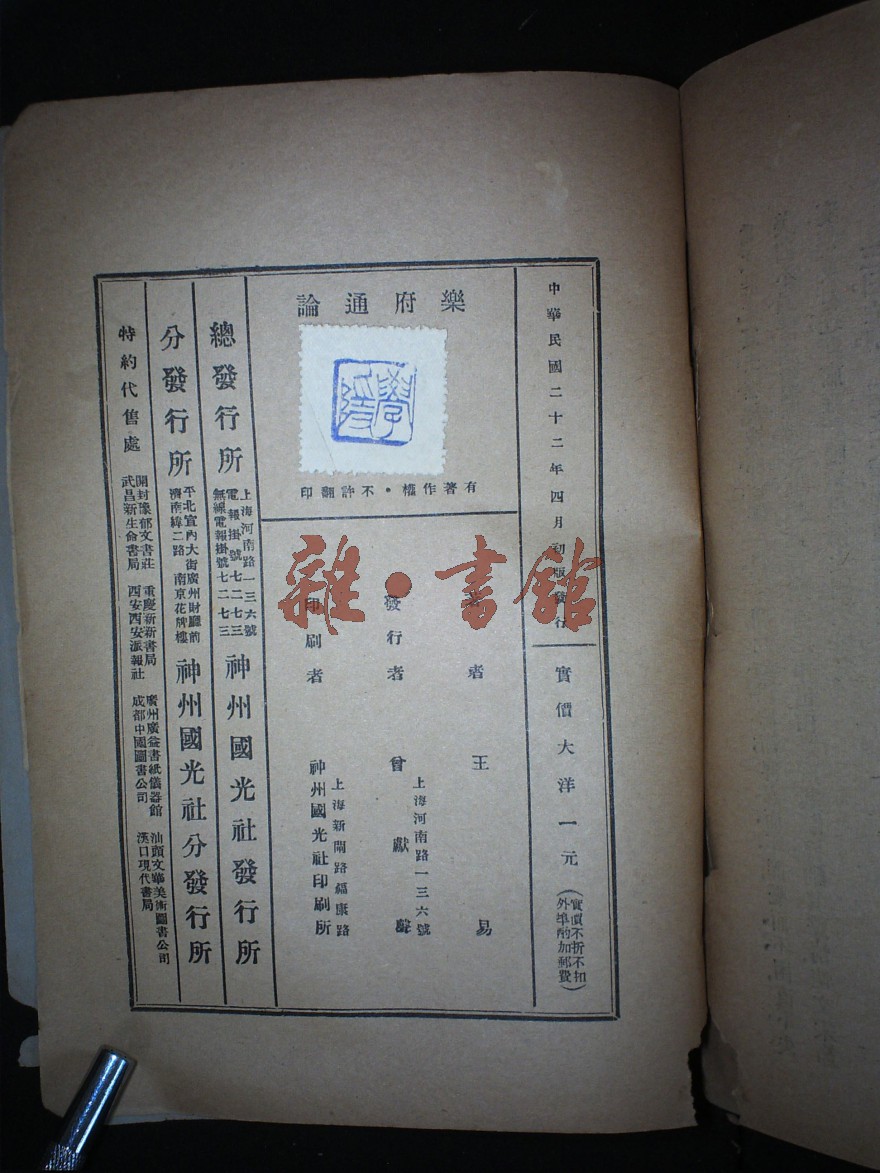 中華民國二十二年四月初版發行
實價大洋一元
(實價不折不扣
外埠酌加郵費)
樂府通論
有著作權・不許翻印
著者 王易
發行者
上海河南路一三六號
曾獻聲
印刷者
上海新閘路福康路
神州國光社印刷所
雜・書館
總發行所
上海河南路一三六號
電報掛號七二七三
無線電報掛號七二七三
神州國光社發行所
分發行所
平北宣內大街廣州財廳前
濟南緯二路 南京花牌樓
神州國光社分發行所
特約代售處
開封豫郁文書莊 重慶新新書局 廣州廣益書紙儀器館 汕頭文華美術圖書公司
武昌新生命書局 西安西安派報社 成都中國圖書公司 漢口現代書局